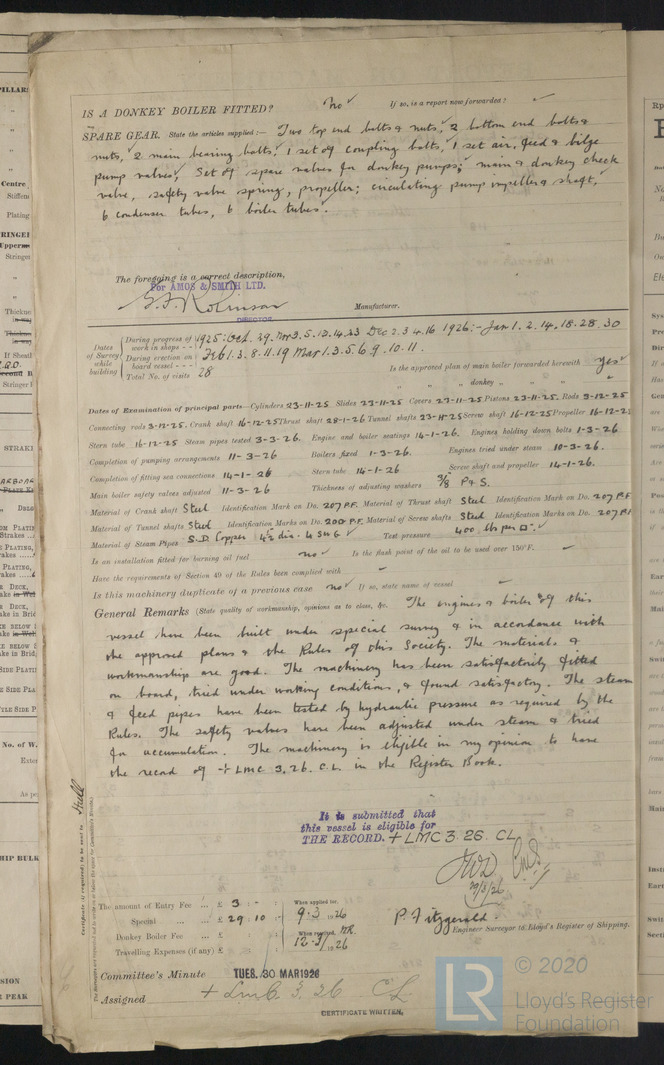 IS A DONKEY BOILER FITTED? no ✓ If so, is a report now forwarded? ✓
SPARE GEAR. State the articles supplied:— Two top end bolts & nuts, 2 bottom end bolts &
nuts, 2 main bearing bolts, 1 set of coupling bolts, 1 set air, feed & bilge
pump valves, Set of spare valves for donkey pumps; main & donkey check
valve, safety valve spring, propeller; circulating pump impeller & shaft,
6 condenser tubes, 6 boiler tubes.
The foregoing is a correct description,
For AMOS & SMITH LTD.
Robinson Manufacturer.
DIRECTOR.
Dates of Survey while building
During progress of work in shops - - 1925:- Oct. 29. Nov 3. 5. 12. 14. 23 Dec 2. 3. 4. 16 1926:- Jan 1. 2. 14. 18. 28. 30
During erection on board vessel - - - Feb 1. 3. 8. 11. 19 Mar 1. 3. 5. 6. 9. 10. 11.
Total No. of visits 28 Is the approved plan of main boiler forwarded herewith yes ✓
" " " donkey " " "
Dates of Examination of principal parts—Cylinders 23-11-25 Slides 23-11-25 Covers 23-11-25 Pistons 23-11-25 Rods 3-12-25
Connecting rods 3-12-25. Crank shaft 16-12-25 Thrust shaft 28-1-26 Tunnel shafts 23-11-25 Screw shaft 16-12-25 Propeller 16-12-25
Stern tube 16-12-25 Steam pipes tested 3-3-26. Engine and boiler seatings 14-1-26. Engines holding down bolts 1-3-26
Completion of pumping arrangements 11-3-26 Boilers fixed 1-3-26. Engines tried under steam 10-3-26.
Completion of fitting sea connections 14-1-26 Stern tube 14-1-26 Screw shaft and propeller 14-1-26.
Main boiler safety valves adjusted 11-3-26 Thickness of adjusting washers 3/8 P & S.
Material of Crank shaft Steel Identification Mark on Do. 207 P.F. Material of Thrust shaft Steel Identification Mark on Do. 207 P.F.
Material of Tunnel shafts Steel Identification Marks on Do. 200 P.F. Material of Screw shafts Steel Identification Marks on Do. 207 P.F
Material of Steam Pipes S.D. Copper 4½ dia. 4 SWG ✓ Test pressure 400 lbs per □".✓
Is an installation fitted for burning oil fuel no ✓ Is the flash point of the oil to be used over 150°F. ✓
Have the requirements of Section 49 of the Rules been complied with ✓
Is this machinery duplicate of a previous case no ✓ If so, state name of vessel ✓
General Remarks (State quality of workmanship, opinions as to class, &c. The engines & boiler of this
vessel have been built under special survey & in accordance with
the approved plans & the Rules of this Society. The materials &
workmanship are good. The machinery has been satisfactorily fitted
on board, tried under working conditions, & found satisfactory. The steam
& feed pipes have been tested by hydraulic pressure as required by the
Rules. The safety valves have been adjusted under steam & tried
for accumulation. The machinery is eligible in my opinion to have
the record of + LMC 3.26. C.L. in the Register Book.
It is submitted that
this vessel is eligible for
THE RECORD. + LMC 3.26. CL
Certificate (if required) to be sent to Hull
The amount of Entry Fee ... £ 3 : - : When applied for,
Special ... £ 29 : 10 : 9.3.1926
Donkey Boiler Fee ... £ : : When received,
Travelling Expenses (if any) £ : : 12.3.1926
P. Fitzgerald.
Engineer Surveyor to Lloyd's Register of Shipping.
Committee's Minute TUES. 30 MAR 1926
Assigned + LMC 3.26 CL
CERTIFICATE WRITTEN.
LR © 2020
Lloyd's Register
Foundation